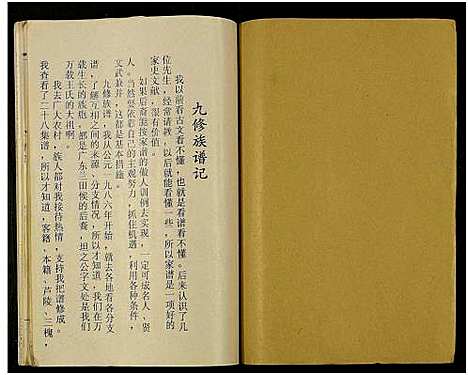 九修族谱记
我以前看古文看不懂，也就是看谱看不懂。后来认识了几
位先生，经常请教，以后就能看懂一些，所以家谱是一项好的
家史文献，很有价值。
如果后裔能按家谱的做人训例去实现，一定可成名人、贤
人。当然坚依彩自己的主观努力，抓住机遇，利用各种条件，
文武兼并，这都是基本措施。
九修族谱，我从公元一九八六年开始，就去各地看各分支
谱，了解互相之间的来源、分支情况，所以才知道，我们在万
载生长的族胞，都是广东三田候的后裔，坦之公字文处是我们
万载王氏的大祖啊。
我去广大农村，族人都对我接待热情，支持我把谱修成。
我查看了二十八集谱，所以才知道，客籍、本籍、芦陵、三槐，